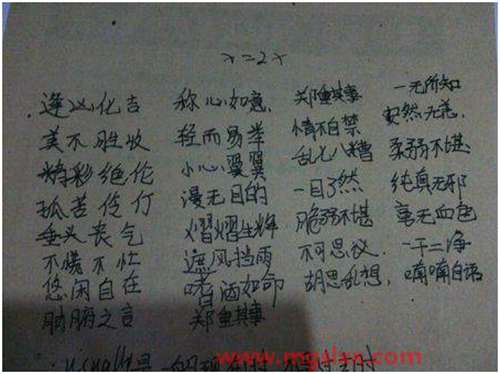 x=2x
逢凶化吉 称心如意. 郑重其事 一无所知
美不胜收 轻而易举 情不自禁 安然无恙.
精彩绝伦 小心翼翼 乱七八糟 柔弱不堪
孤苦伶仃 漫无目的 一目了然 纯真无邪
垂头丧气 熠熠生辉 脆弱不堪 毫无血色
不慌不忙 遮风挡雨 不可思议. 一干二净
悠闲自在 嗜酒如命 胡思乱想. 喃喃自语
肺腑之言 郑重其事